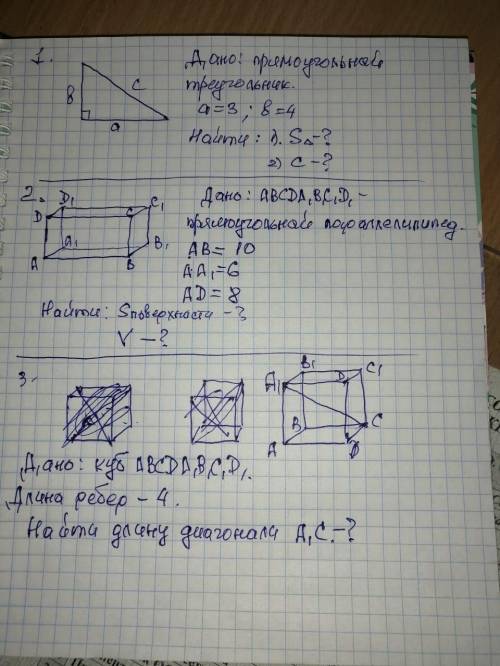 1.
Дано: прямоугольный
треугольник.
a=3; b=4
Найти: 1). S△-?
2) c-?
b
c
a
2.
Дано: ABCDA₁B₁C₁D₁-
прямоугольный параллелипипед.
AB= 10
AA₁=6
AD= 8
D₁
D
C
C₁
A₁
B₁
A
B
Найти: Sповерхности -?
V -?
3.
B₁
C₁
A₁
D₁
B
C
A
D
Дано: куб ABCDA₁B₁C₁D₁.
Длина ребер - 4.
Найти длину диагонали A₁C.-?